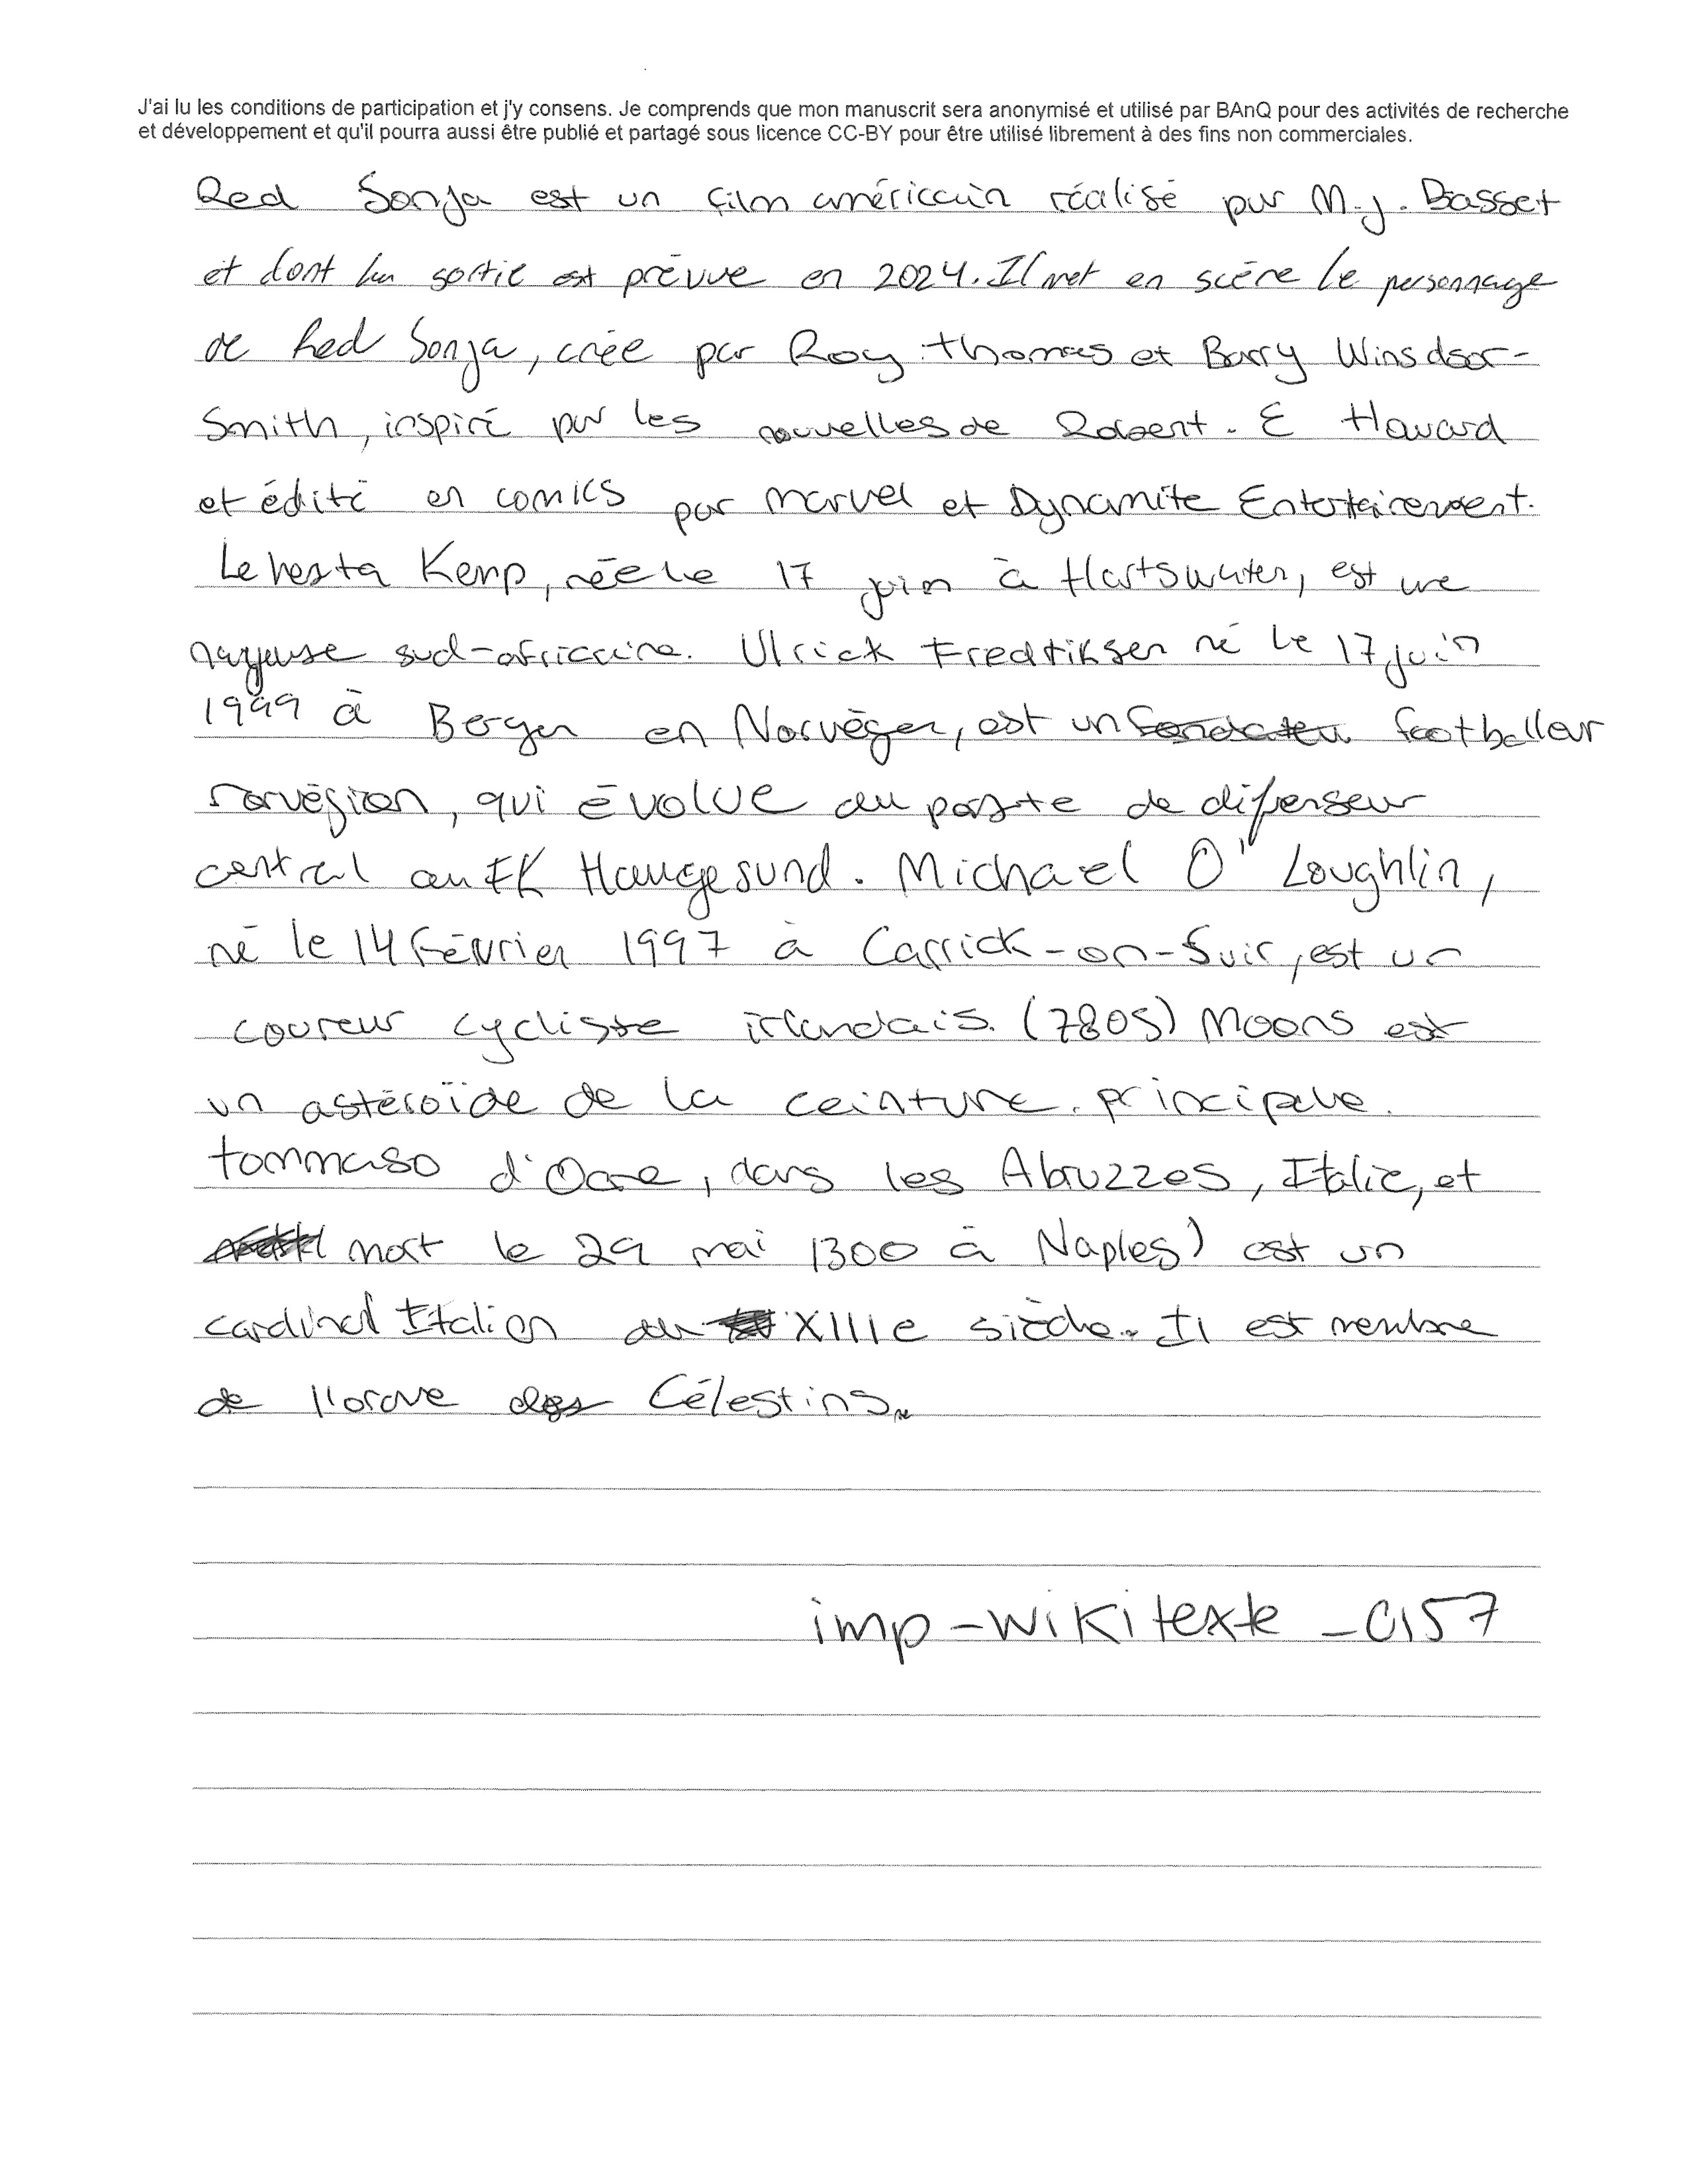 J'ai lu les conditions de participation et j'y consens. Je comprends que mon manuscrit sera anonymisé et utilisé par BAnQ pour des activités de recherche
et développement et qu'il pourra aussi être publié et partagé sous licence CC-BY pour être utilisé librement à des fins non commerciales.
Red Sonja est un film américain réalisé par M.J. Basset
et dont la sortie est prévue en 2024. Il met en scène le personnage
de Red Sonja, créé par Roy Thomas et Barry Winsdsor-
Smith, inspiré par les nouvelles de Robert. E Howard
et édité en comics par Marvel et Dynamite Entertainement.
Lehesta Kemp, née le 17 juin à Hartswater, est une
nageuse sud-africaine. Ulrick Fredriksen né le 17 juin
1999 à Bergen en Norvèger, est un footballeur
norvégien, qui évolue au poste de défenseur
central au FK Haugesund. Michael O'Loughlin,
né le 14 Février 1997 à Carrick-on-Suir, est un
coureur cycliste irlandais. (7805) Moons est
un astéroïde de la ceinture principale.
tommaso d'Ocre, dans les Abruzzes, Italie, et
mort le 29 mai 1300 à Naples) est un
cardinal Italien du XIIIe siècle. Il est membre
de l'ordre des Célestins.
imp-wikitexte_0157